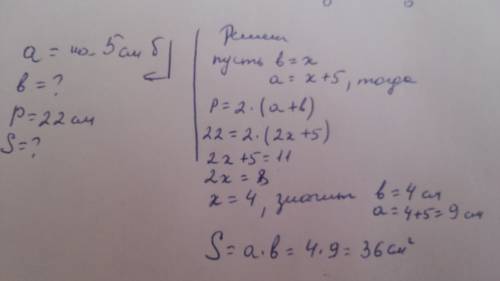 a = на 5 см б
в = ?
P = 22 см
S = ?
Решение
пусть в = x
a = x+5, тогда
P = 2 · (a+в)
22 = 2 · (2x+5)
2x+5 = 11
2x = 8
x = 4, значит в = 4 см
a = 4+5 = 9 см
S = a · в = 4 · 9 = 36 см²